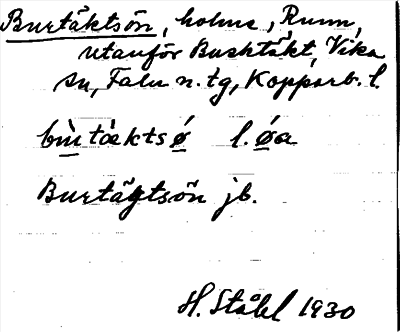 Burtäktsön, holme, Runn,
utanför Busktäkt, Vika
sn, Falu n. tg, Kopparb. l.
bùtàkts ǿ l. ǿa
Burtägtsön jb.
H. Ståhl 1930